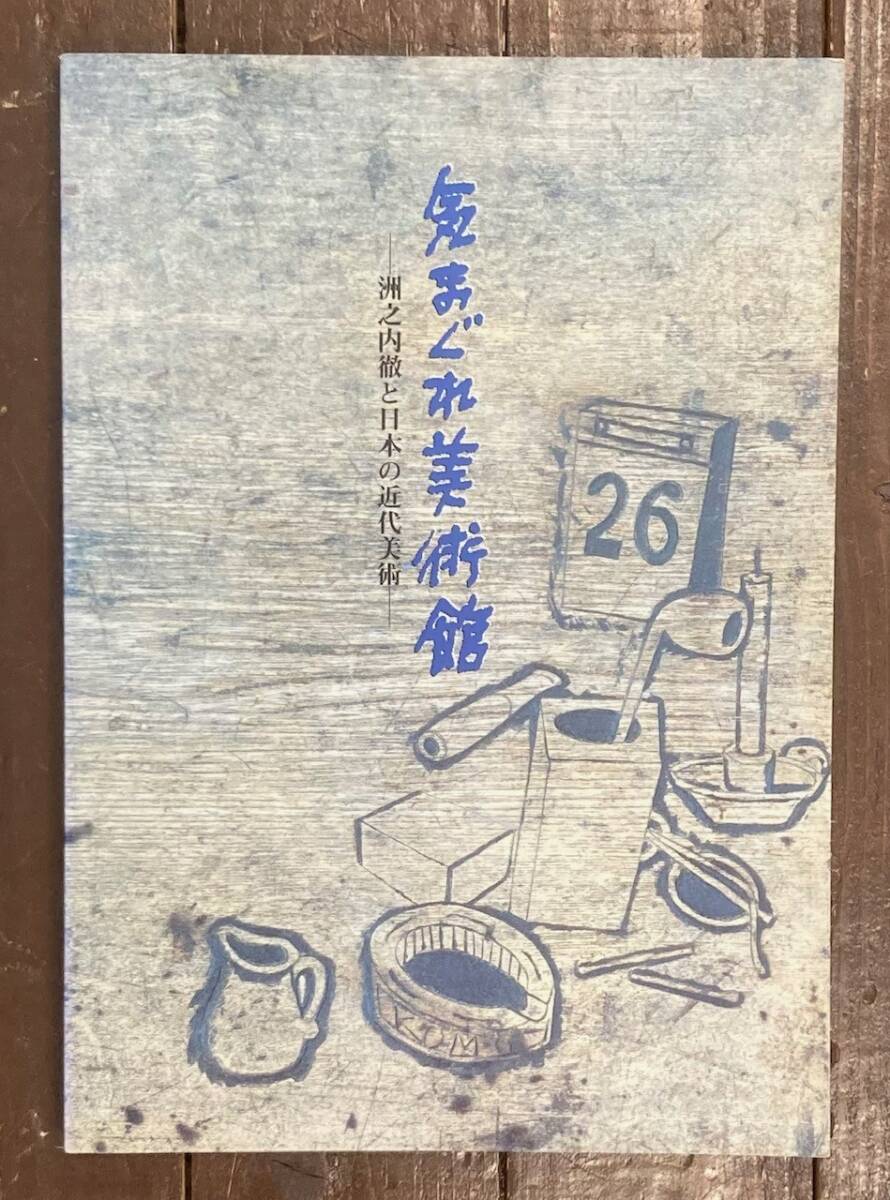 気まぐれ美術館
―洲之内徹と日本の近代美術―
26
KOMO